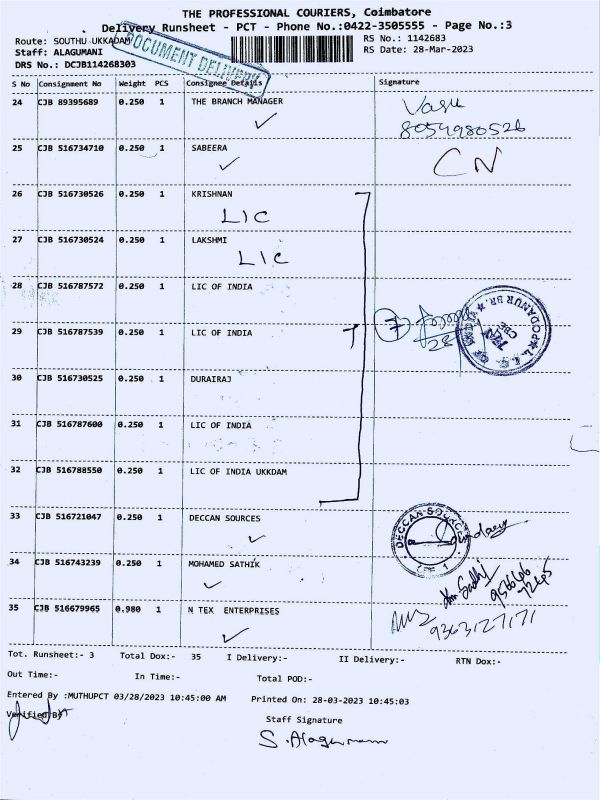 THE PROFESSIONAL COURIERS, Coimbatore
Delivery Runsheet - PCT - Phone No.:0422-3505555 - Page No.:3
Route: SOUTHU UKKADAM
RS No.: 1142683
Staff: ALAGUMANI
RS Date: 28-Mar-2023
DOCUMENT DELIVERY
DRS No.: DCJB114268303
S No Consignment No Weight PCS Consignee Details Signature
24 CJB 89395689 0.250 1 THE BRANCH MANAGER Vasu
8054980526
25 CJB 516734710 0.250 1 SABEERA CN
26 CJB 516730526 0.250 1 KRISHNAN
LIC
27 CJB 516730524 0.250 1 LAKSHMI
LIC
28 CJB 516787572 0.250 1 LIC OF INDIA
29 CJB 516787539 0.250 1 LIC OF INDIA
7
30 CJB 516730525 0.250 1 DURAIRAJ
31 CJB 516787600 0.250 1 LIC OF INDIA
32 CJB 516788550 0.250 1 LIC OF INDIA UKKDAM
33 CJB 516721047 0.250 1 DECCAN SOURCES
DECCAN SOURCES
34 CJB 516743239 0.250 1 MOHAMED SATHIK
35 CJB 516679965 0.980 1 N TEX ENTERPRISES
9363127171
Tot. Runsheet:- 3 Total Dox:- 35 I Delivery:- II Delivery:- RTN Dox:-
Out Time:- In Time:- Total POD:-
Entered By :MUTHUPCT 03/28/2023 10:45:00 AM Printed On: 28-03-2023 10:45:03
Verified By
Staff Signature
S. Alagumani